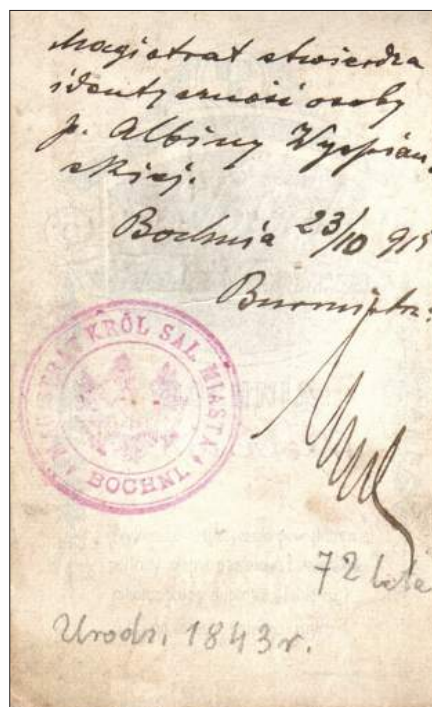 Magistrat stwierdza
identyczność osoby
p. Albiny Wyspiań-
skiej.
Bochnia 23/10 915
Burmistrz:
MAGISTRAT KRÓL. SAL. MIASTA
BOCHNI
72 lata
Urodz. 1843 r.